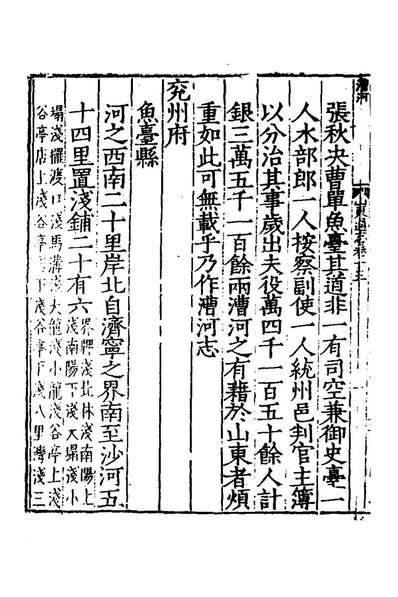 張秋決曹單魚臺其道非一有司空兼御史臺一
人水部郎一人按察副使一人統州邑判官主簿
以分治其事歲出夫役萬四千一百五十餘人計
銀三萬五千一百餘兩漕河之有藉於山東者煩
重如此可無載乎乃作漕河志
兖州府
魚臺縣
河之西南二十里岸北自濟寧之界南至沙河五
十四里置淺鋪二十有六界牌淺北林淺南陽上淺南陽下淺大塌淺小
塌淺擺渡口淺馬溝淺大龍淺小龍淺谷亭上淺
谷亭店上淺谷亭店下淺谷亭下淺八里灣淺三